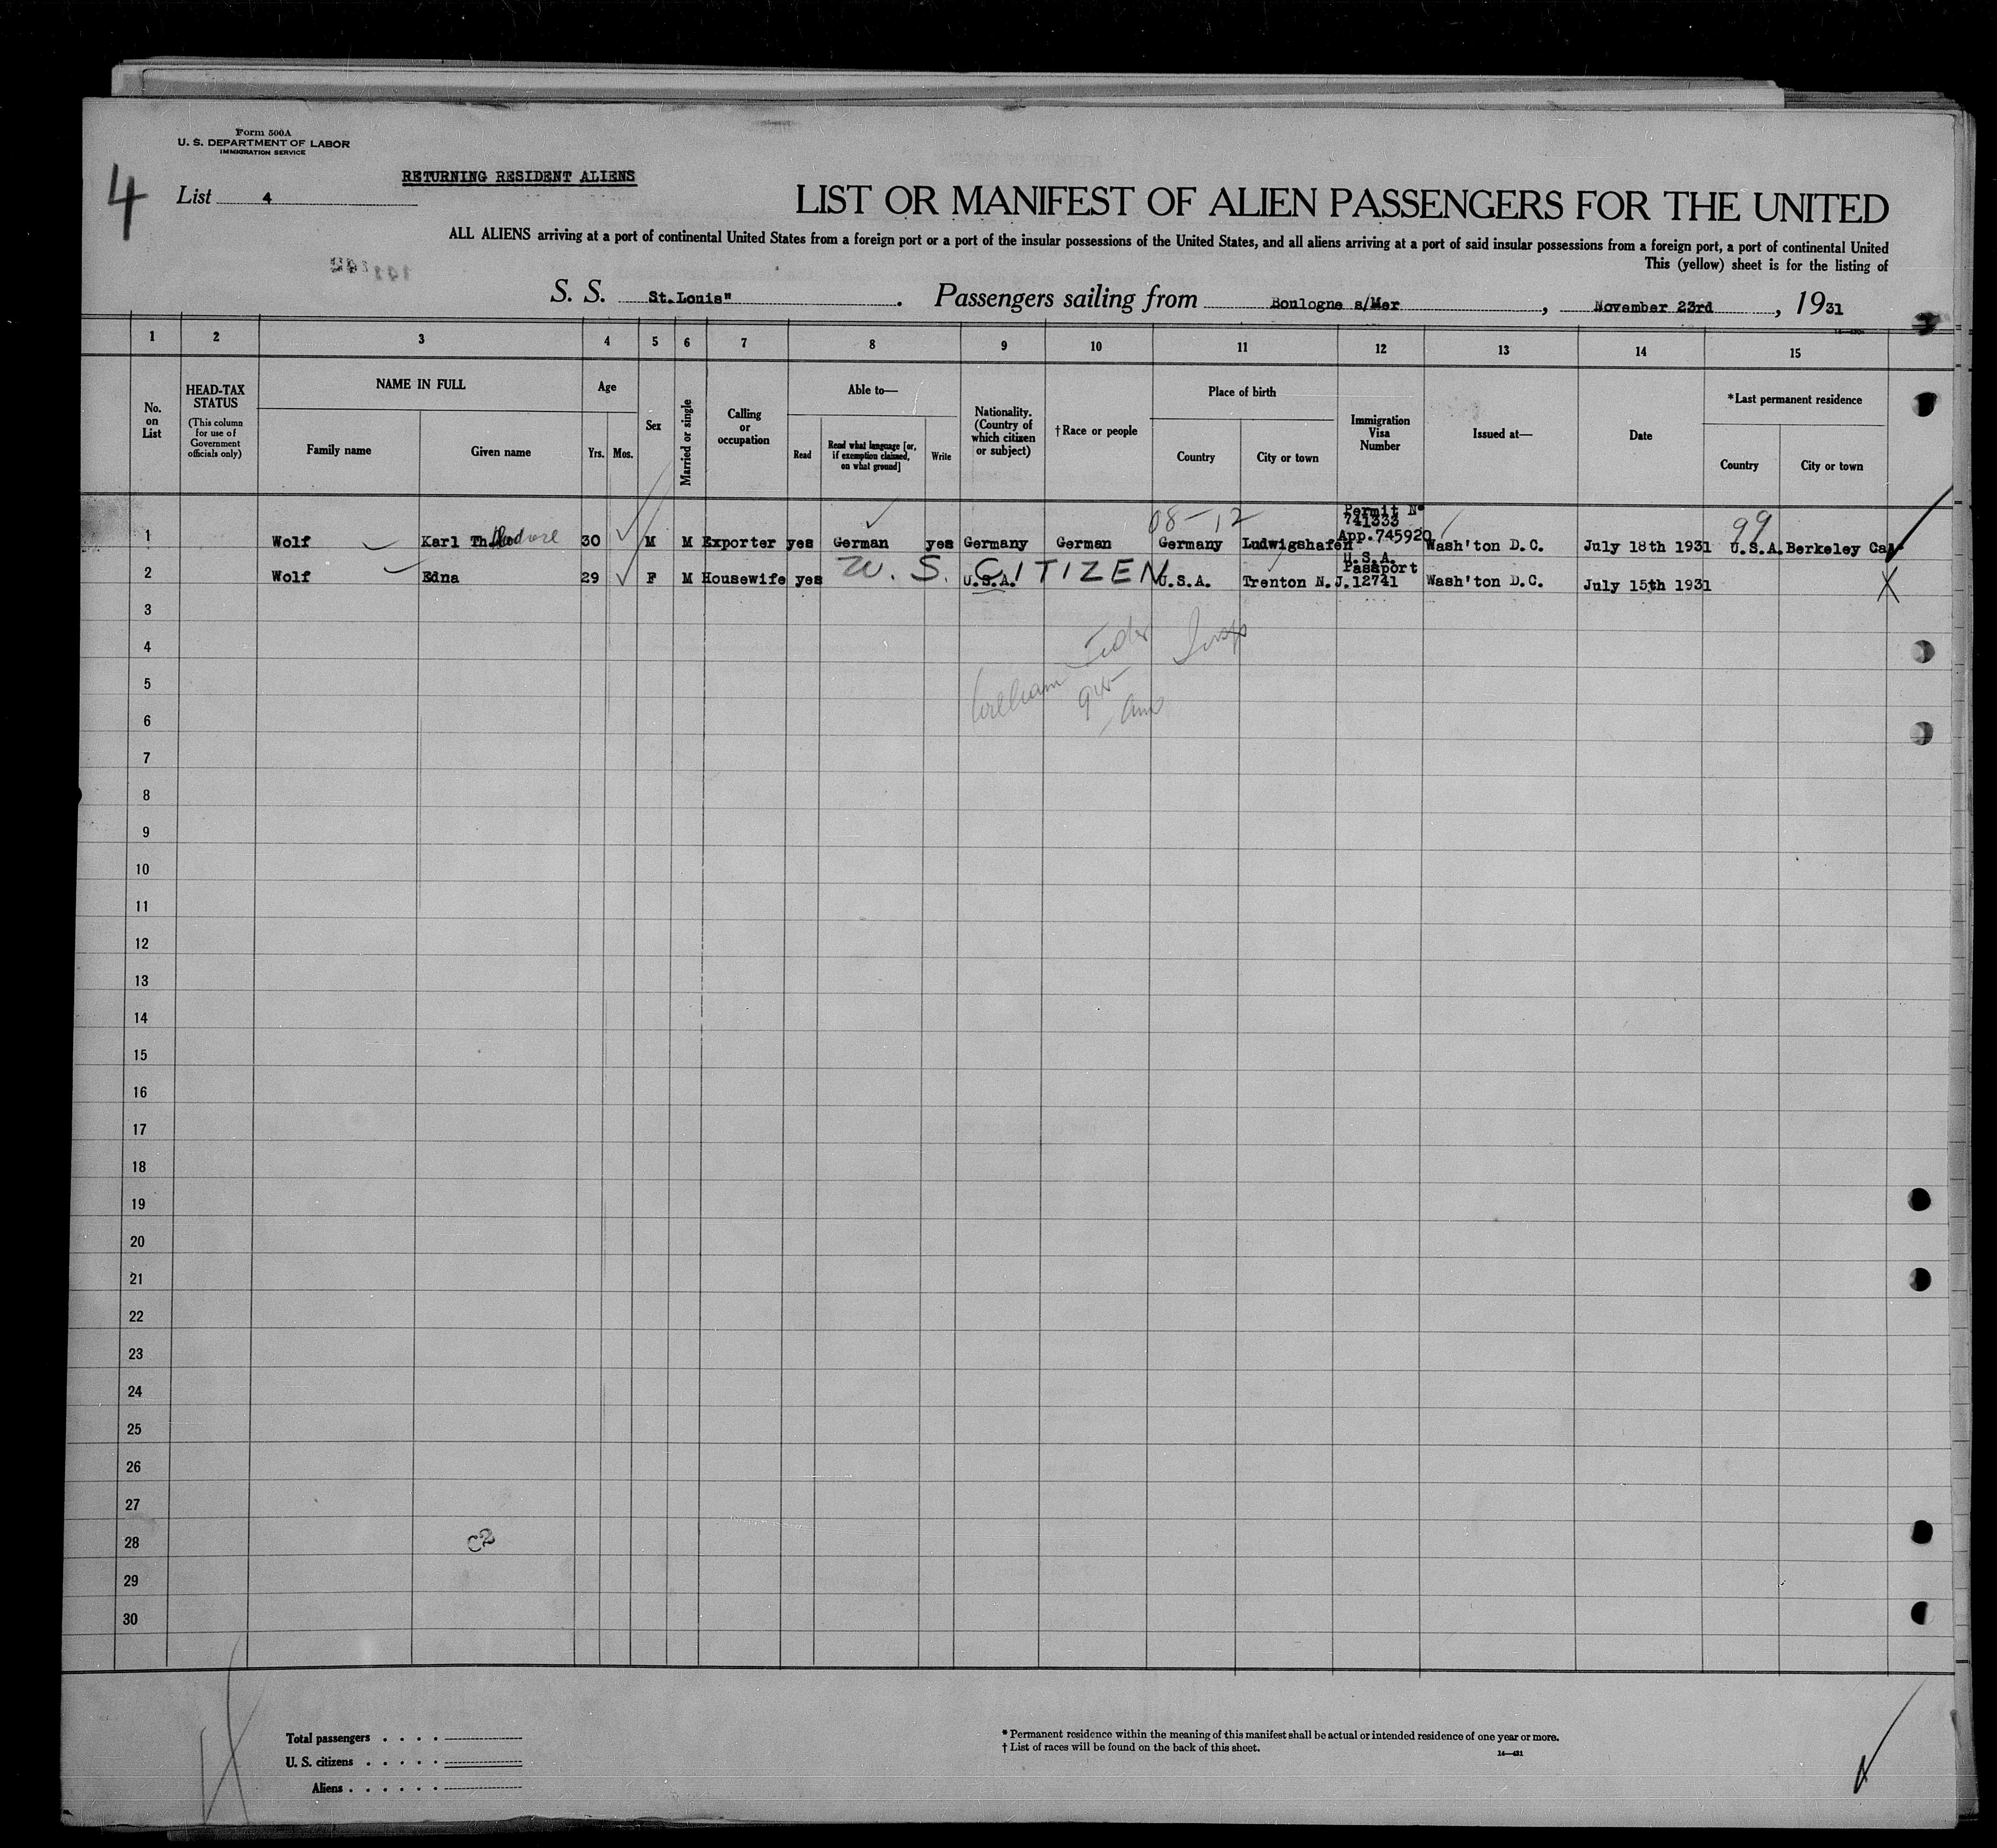 Form 500A
U. S. DEPARTMENT OF LABOR
IMMIGRATION SERVICE
4
RETURNING RESIDENT ALIENS
List 4
LIST OR MANIFEST OF ALIEN PASSENGERS FOR THE UNITED
ALL ALIENS arriving at a port of continental United States from a foreign port or a port of the insular possessions of the United States, and all aliens arriving at a port of said insular possessions from a foreign port, a port of continental United
This (yellow) sheet is for the listing of
S. S. St.Louis" . Passengers sailing from Boulogne s/Mer , November 23rd , 1931
1 2 3 4 5 6 7 8 9 10 11 12 13 14 15
No. on List
HEAD-TAX STATUS
(This column for use of Government officials only)
NAME IN FULL
Family name
Given name
Age
Yrs.
Mos.
Sex
Married or single
Calling or occupation
Able to—
Read
Read what language [or, if exemption claimed, on what ground]
Write
Nationality. (Country of which citizen or subject)
†Race or people
Place of birth
Country
City or town
Immigration Visa Number
Issued at—
Date
*Last permanent residence
Country
City or town
08-12
Permit No
741333
99
1 Wolf Karl Theodore 30 M M Exporter yes German yes Germany German Germany Ludwigshafen App.745920 Wash'ton D.C. July 18th 1931 U.S.A. Berkeley Cal
U.S.A.
Passport
2 Wolf Edna 29 F M Housewife yes U.S. CITIZEN U.S.A. U.S.A. Trenton N.J. 12741 Wash'ton D.C. July 15th 1931
3
4
5
William
6
7
8
9
10
11
12
13
14
15
16
17
18
19
20
21
22
23
24
25
26
27
28 C2
29
30
Total passengers . . . .
U. S. citizens . . . . .
Aliens . . . . . .
* Permanent residence within the meaning of this manifest shall be actual or intended residence of one year or more.
† List of races will be found on the back of this sheet.
14—421